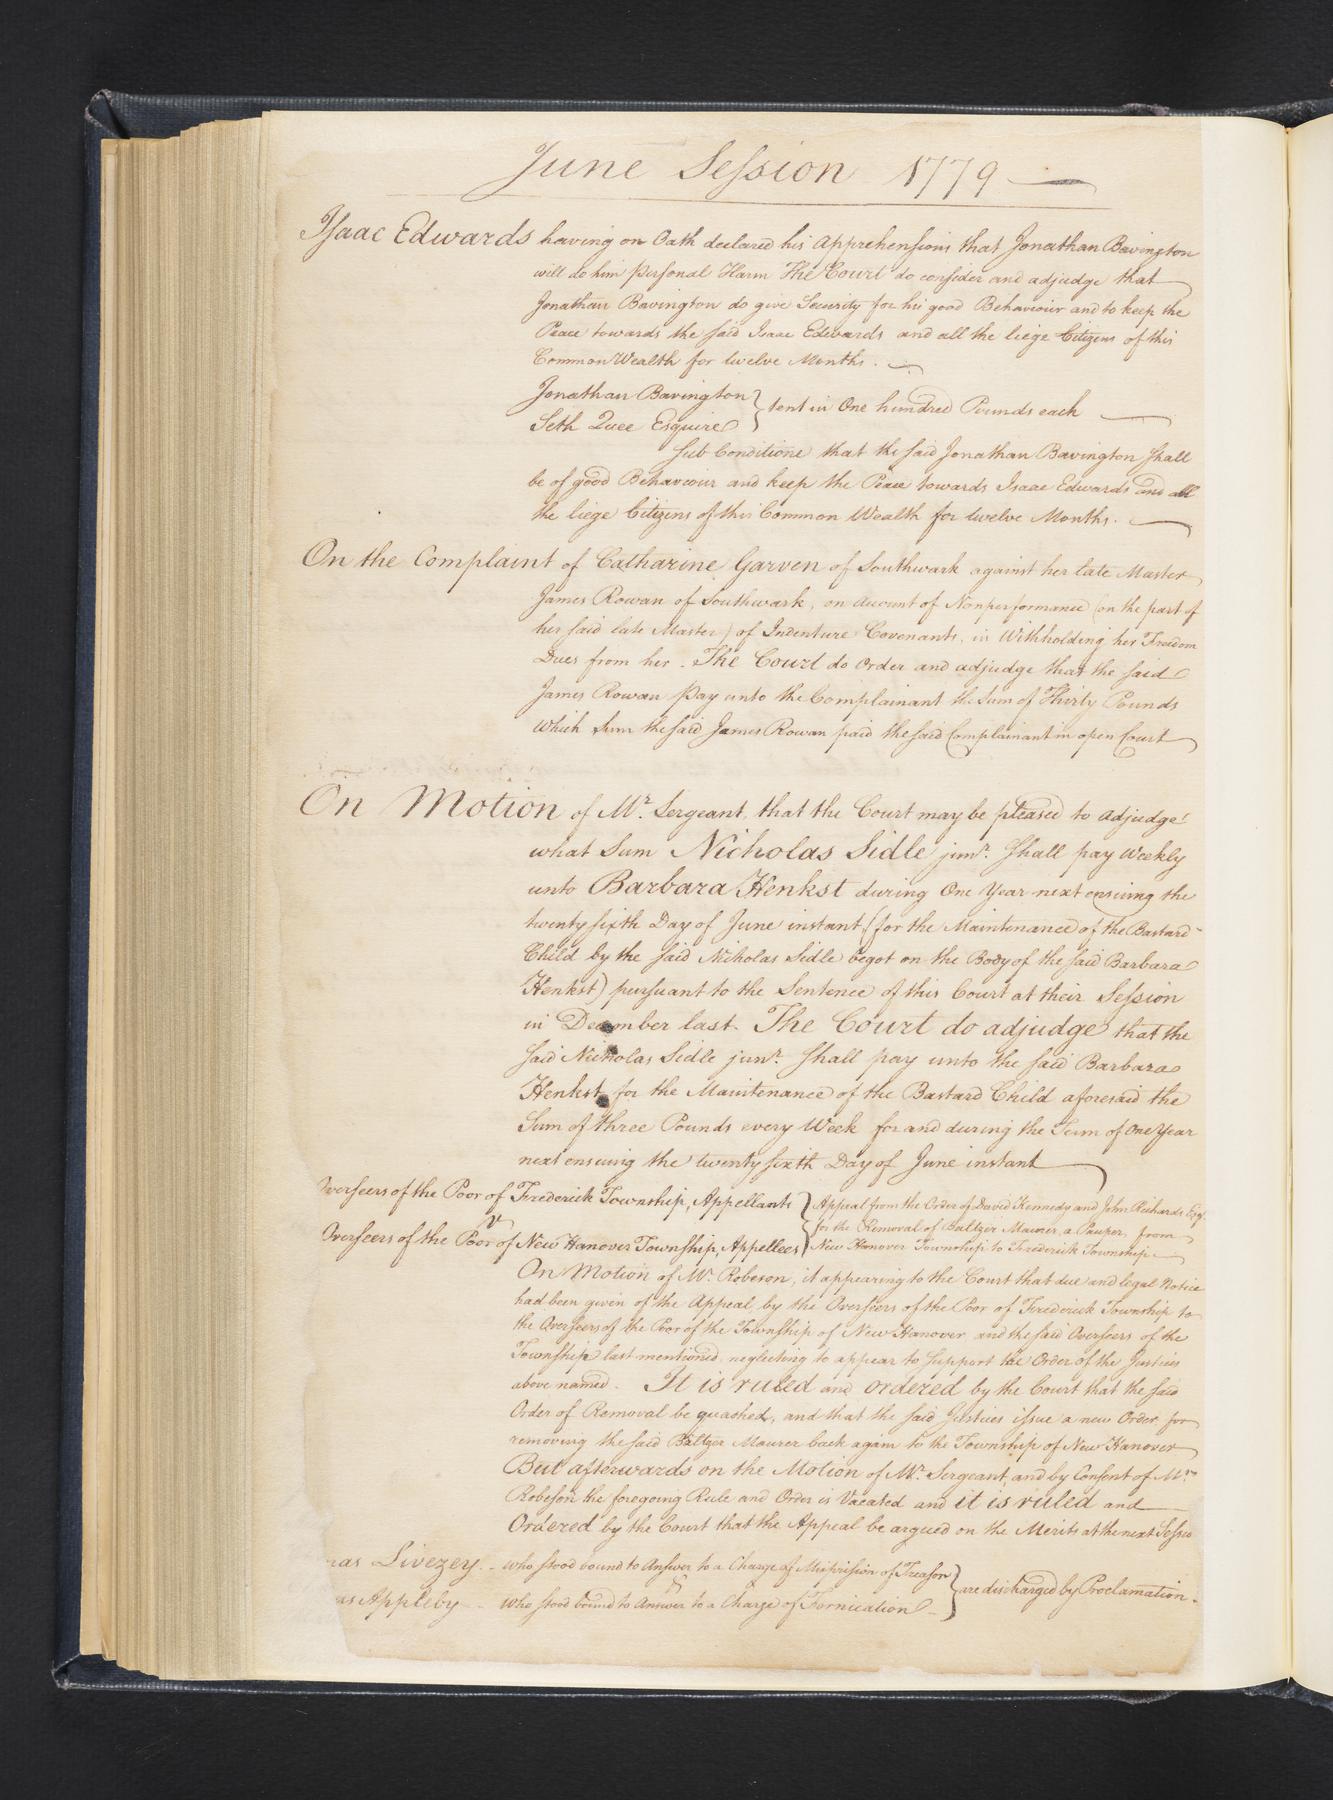 June Session 1779
Isaac Edwards having on Oath declared his Apprehensions that Jonathan Bavington
will do him personal Harm The Court do consider and adjudge that
Jonathan Bavington do give Security for his good Behaviour and to keep the
Peace towards the said Isaac Edwards and all the liege Citizens of this
Common Wealth for twelve Months.
Jonathan Bavington
Seth Quee Esquire } tent in One hundred Pounds each
Sub Conditione that the said Jonathan Bavington shall
be of good Behaviour and keep the Peace towards Isaac Edwards and all
the liege Citizens of this Common Wealth for twelve Months.
On the Complaint of Catharine Garven of Southwark against her late Master
James Rowan of Southwark, on Account of Nonperformance (on the part of
her said late Master) of Indenture Covenants, in Withholding her Freedom
Dues from her. The Court do Order and adjudge that the said
James Rowan pay unto the Complainant the Sum of Thirty Pounds
which Sum the said James Rowan paid the said Complainant in open Court
On Motion of Mr. Sergeant, that the Court may be pleased to adjudge
what Sum Nicholas Sidle junr. shall pay Weekly
unto Barbara Henkst during One Year next ensuing the
twenty sixth Day of June instant (for the Maintenance of the Bastard
Child by the said Nicholas Sidle begot on the Body of the said Barbara
Henkst) pursuant to the Sentence of this Court at their Session
in December last. The Court do adjudge that the
said Nicholas Sidle junr. shall pay unto the said Barbara
Henkst for the Maintenance of the Bastard Child aforesaid the
Sum of three Pounds every Week for and during the Term of One Year
next ensuing the twenty sixth Day of June instant
Overseers of the Poor of Frederick Township, Appellants
v
Overseers of the Poor of New Hanover Township, Appellees
} Appeal from the Order of David Kennedy and John Richards Esqrs.
for the Removal of Baltzer Maurer, a Pauper, from
New Hanover Township to Frederick Township.
On Motion of Mr. Robeson, it appearing to the Court that due and legal Notice
had been given of the Appeal by the Overseers of the Poor of Frederick Township to
the Overseers of the Poor of the Township of New Hanover and the said Overseers of the
Township last mentioned neglecting to appear to support the Order of the Justices
above named. It is ruled and ordered by the Court that the said
Order of Removal be quashed, and that the said Justices issue a new Order for
removing the said Baltzer Maurer back again to the Township of New Hanover
But afterwards on the Motion of Mr. Sergeant, and by Consent of Mr.
Robeson the foregoing Rule and Order is Vacated and it is ruled and
Ordered by the Court that the Appeal be argued on the Merits at the next Sessio
mas Livezey - who stood bound to Answer to a Charge of Misprision of Treason
as Appleby - who stood bound to Answer to a Charge of Fornication
} are discharged by Proclamation.